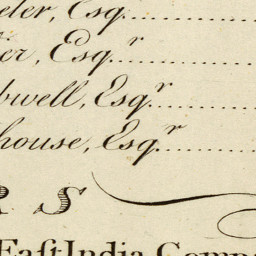 eler, Esq.
ier, Esqr.
bwell, Esqr.
house, Esqr.
R S
East India Comp